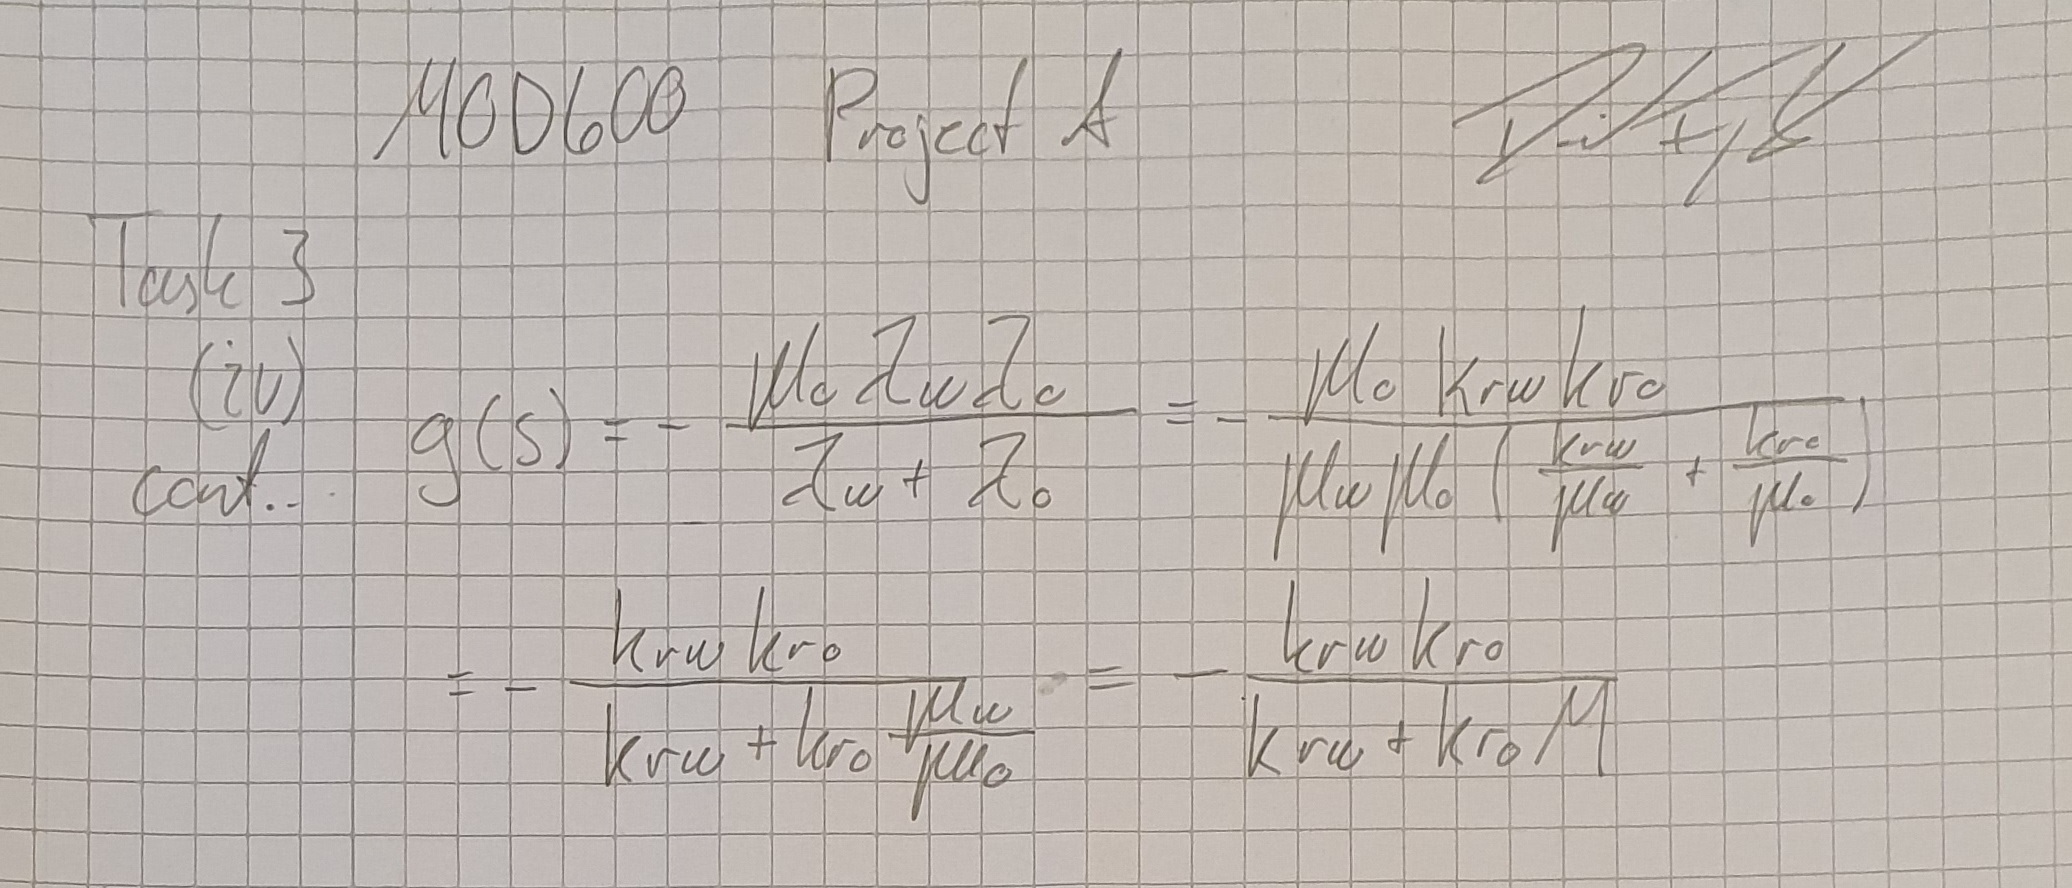 MOD600 Project A
Task 3
(iv)
cont...
g(s) = - μo λw λo / (λw + λo) = - μo krw kro / (μw μo (krw/μw + kro/μo))
= - krw kro / (krw + kro μw/μo) = - krw kro / (krw + kro M)